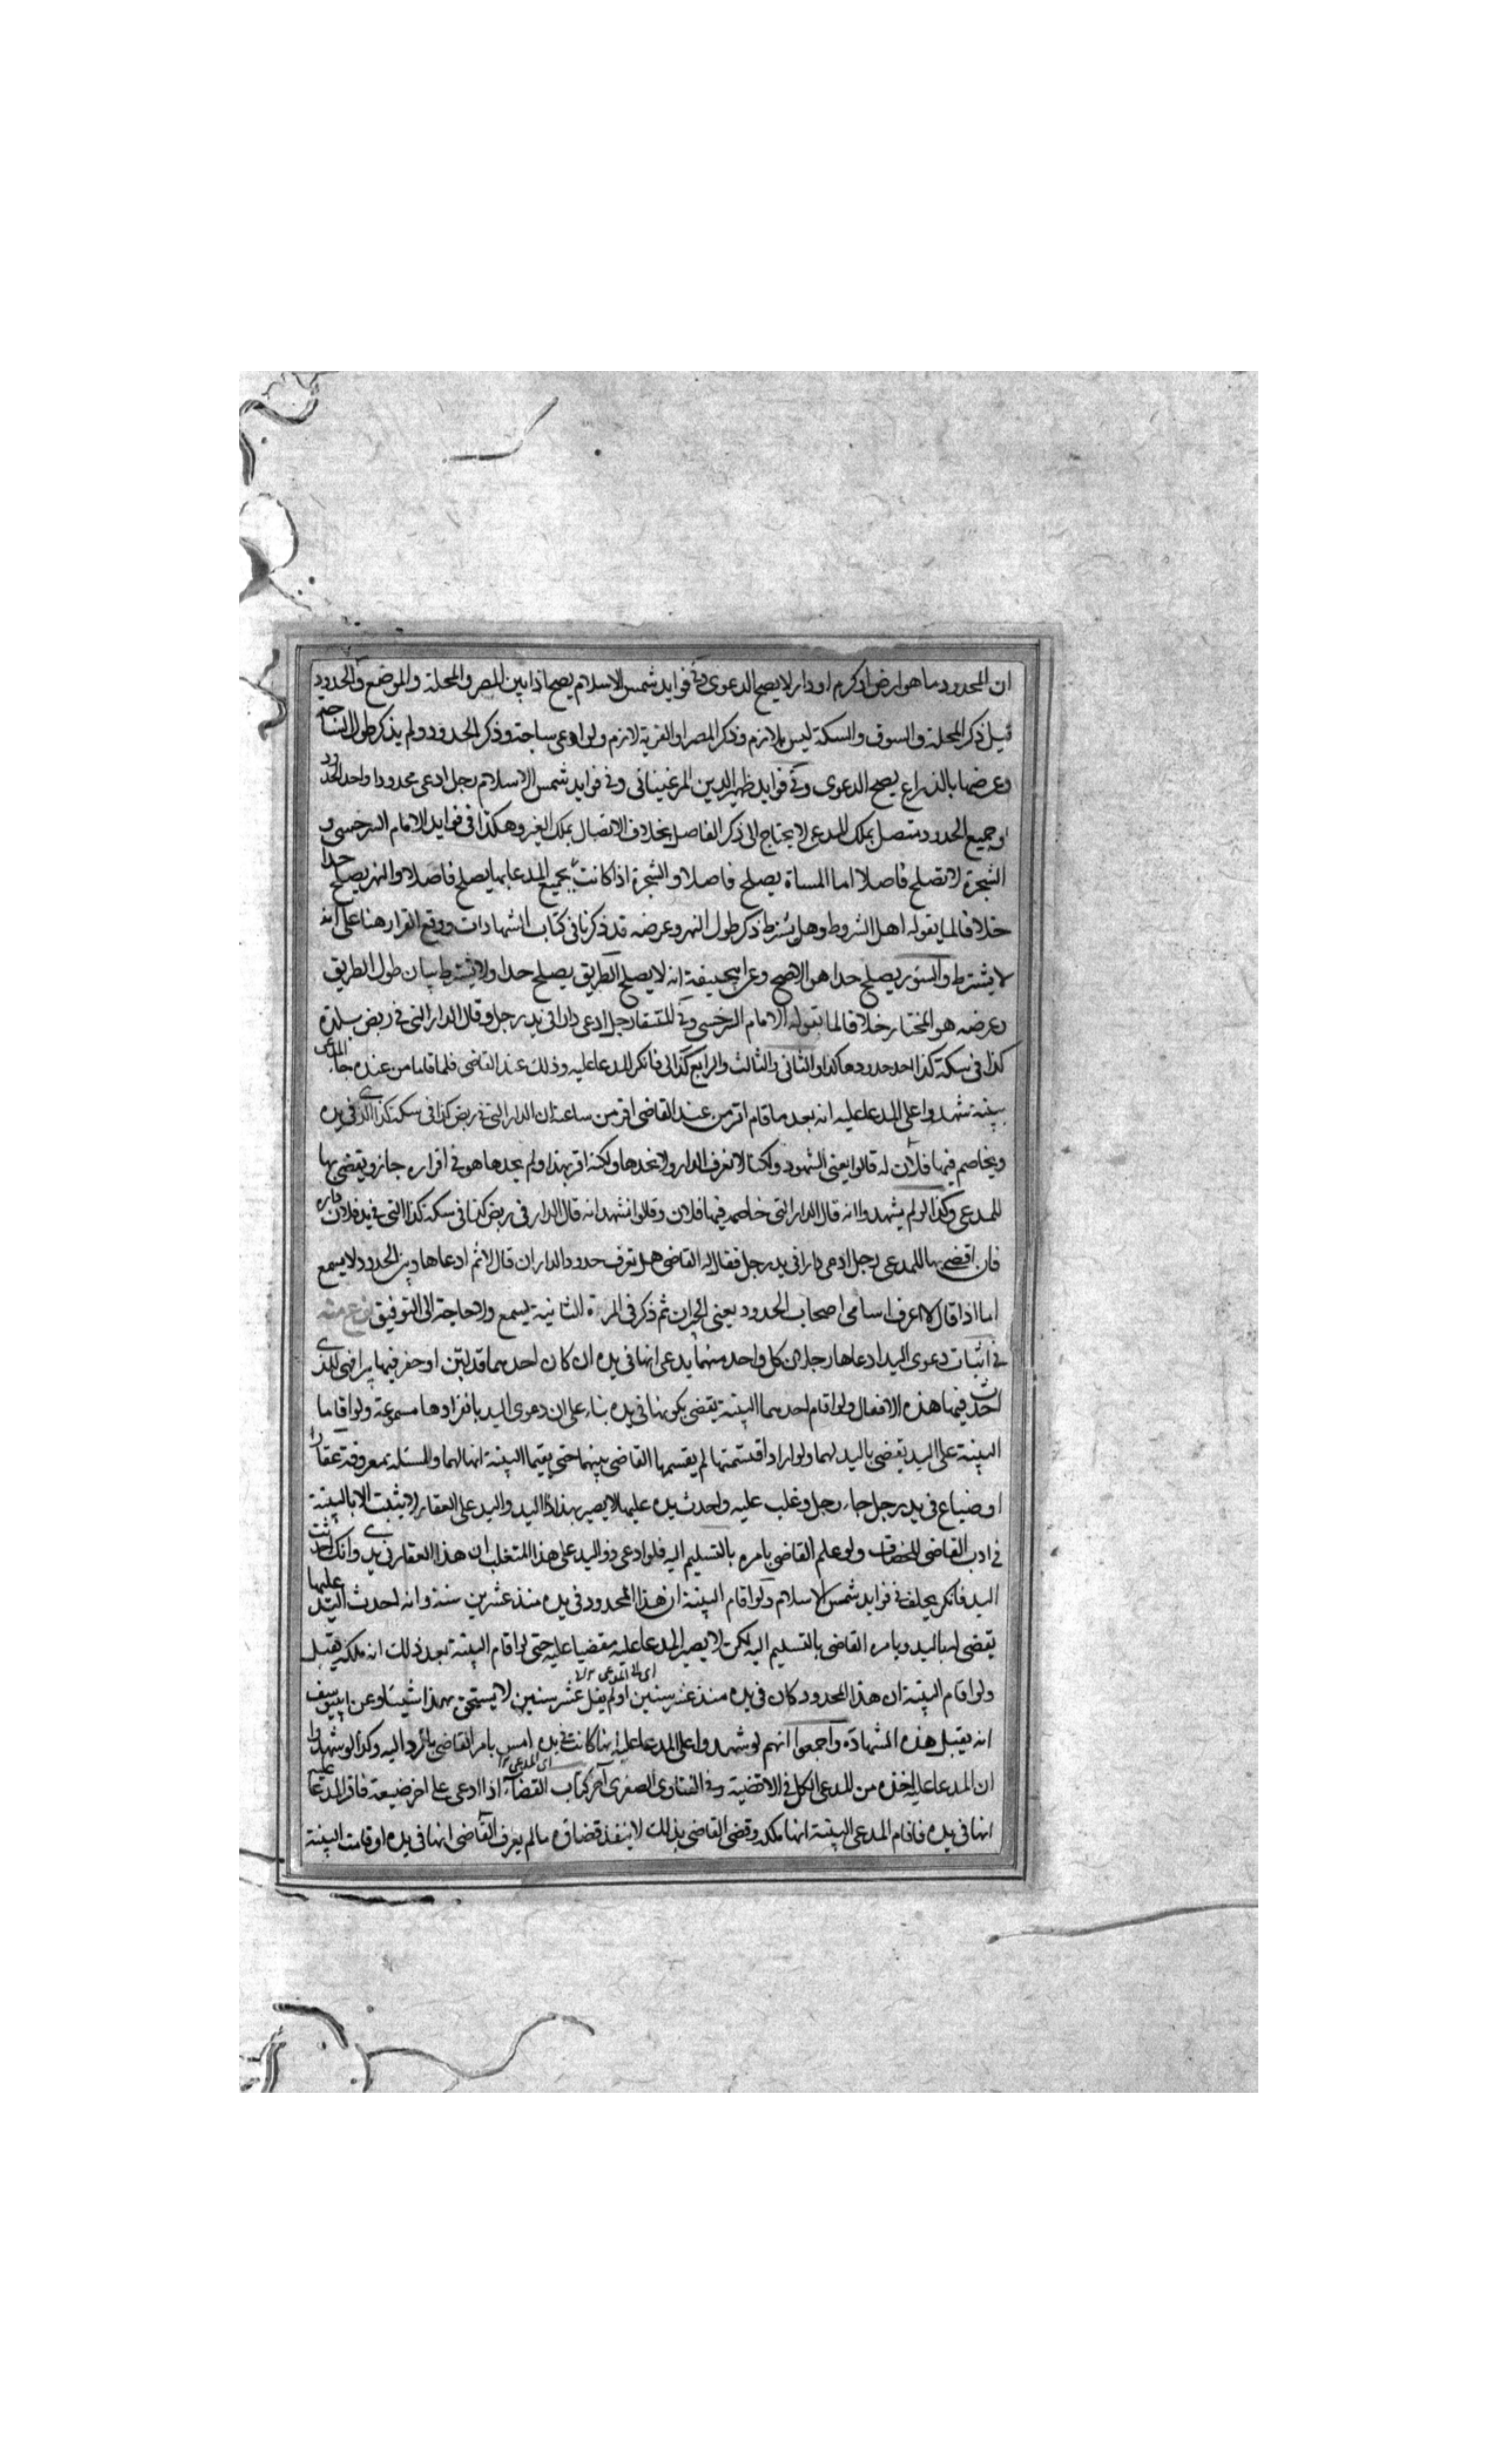 ان المحدود ما هو ارض او كرم او دار لا يصح الدعوى وفي فوايد شمس الاسلام يصح اذا بين المصر والمحلة والموضع والحدود
قيل ذكر المحلة والسوق والسكة ليس بلازم وذكر المصر او القرية لازم ولو ادعى ساحة وذكر الحدود ولم يذكر طول الساحة
وعرضها بالذراع يصح الدعوى وفي فوايد ظهير الدين المرغيناني وفي فوايد شمس الاسلام رجل ادعى محدودا واحد الحدود
او جميع الحدود متصل بملك المدعى لا يحتاج الى ذكر الفاصل بخلاف الاتصال بملك الغير وهكذا في فوايد الامام السرخسي و
الشجرة لا تصلح فاصلا اما المسناة يصلح فاصلا والشجرة اذا كانت بجميع المدعا بها يصلح فاصلا والنهر يصلح حدا
خلافا لما يقوله اهل الشروط وهل يشترط ذكر طول النهر وعرضه قد ذكرنا في كتاب الشهادات ووقع القرار هنا على انه
لا يشترط والسور يصلح حدا هو الاصح وعن ابيحنيفة انه لا يصلح الطريق يصلح حدا ولا يشترط بيان طول الطريق
وعرضه هو المختار خلافا لما يقوله الامام السرخسي وفي المنتقا رجل ادعى دارا في يد رجل وقال الدار التي في ربض بلدة
كذا في سكة كذا احد حدودها كذا والثاني والثالث والرابع كذا فانكر المدعا عليه وذلك عند القاضي فلما قاما من عنده جاء المدعي
ببينة شهدوا على المدعا عليه انه بعد ما قام اقر من عند القاضي اقر من ساعته ان الدار التي في ربض كذا في سكة كذا الذي في يده
ويخاصم فيها فلان له قالوا يعني الشهود ولكنا لا نعرف الدار ولا نحدها ولكنه اقر بهذا ولم يحدها هو في اقراره جاز ويقضي بها
للمدعي وكذا لو لم يشهدوا انه قال الدار التي خاصمه فيها فلان وقالوا نشهد انه قال الدار في ربض كذا في سكة كذا التي في يد فلان
فان اقضي بها للمدعي رجل ادعى دارا في يد رجل فقال له القاضي هل تعرف حدود الدار ان قال لا ثم ادعاها وبين الحدود لا يسمع
اما اذا قال لا اعرف اسامى اصحاب الحدود يعني الجيران ثم ذكر في المرة الثانية يسمع ولا حاجة الى التوفيق نوع منه
في اثبات دعوى اليد ادعاها رجلان كل واحد منهما يدعي انها في يده ان كان احدهما قد لبن او حفر فيها يراضى للذي
احدث فيها هذه الافعال ولو اقام احدهما البينة يقضى بكونها في يده بناء على ان دعوى اليد بانفرادها مسموعة ولو اقاما
البينة على اليد يقضى باليد لهما ولو ارادا قسمتها لم يقسمها القاضي بينهما حتى يقيما البينة انها لهما والمسئلة معروفة عقارا
او ضياع في يد رجل جاء رجل وغلب عليه واحدث يده عليها لا يصير بهذا ذا اليد واليد على العقار لا يثبت الا بالبينة
في ادب القاضي للخصاف ولو علم القاضي يامره بالتسليم اليه فلو ادعى ذو اليد على هذا المتغلب ان هذا العقار في يدي وانك احدثت
اليد فانكر يحلف في فوايد شمس الاسلام ولو اقام البينة ان هذا المحدود في يده منذ عشرين سنة وانه احدث اليد عليها
يقضى لها باليد ويامره القاضي بالتسليم اليه لكن لا يصير المدعا عليه مقضيا عليه حتى لو اقام البينة بعد ذلك انه ملكه يقبل
ولو اقام البينة ان هذا المحدود كان في يده منذ عشر سنين او لم يقل عشر سنين لا يستحق بهذا شيئا وعن ابييوسف
انه يقبل هذه الشهادة واجمعوا انهم لو شهدوا على المدعا عليه انها كانت في يده امس يامر القاضي بالرد اليه وكذا لو شهدوا
اى المدعي
ان المدعا عليه اخذه من المدعي الكل في الاقضية وفي الفتاوى الصغرى آخر كتاب القضاء اذا ادعى على اخر ضيعة فاقر المدعا عليه
انها في يده فاقام المدعي البينة انها ملكه وقضى القاضي بذلك لا ينفذ قضاؤه ما لم يعرف القاضي انها في يده او قامت البينة